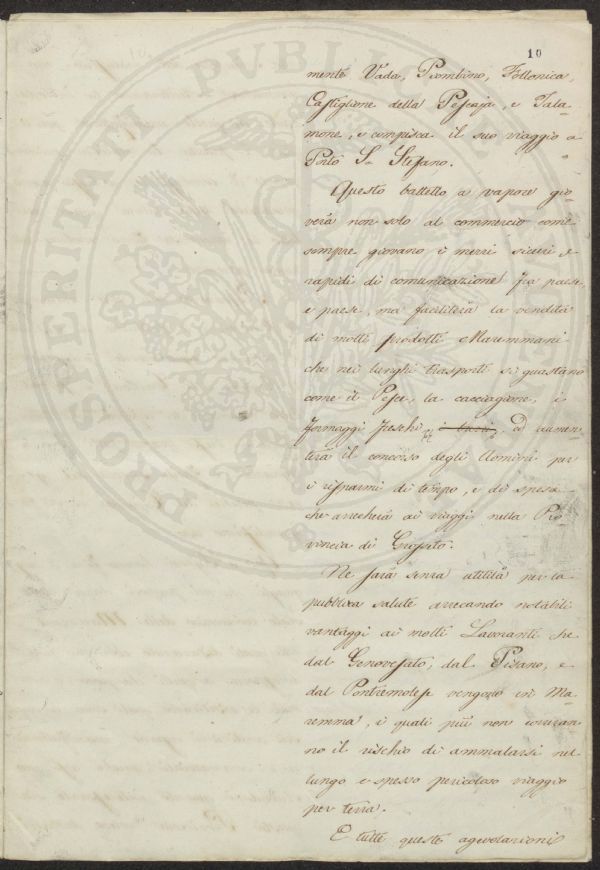 10
mente Vada, Piombino, Follonica,
Castiglione della Pescaja, e Tala-
mone, e compisca il suo viaggio a
Porto S. Stefano.
Questo battello a vapore gio-
verà non solo al commercio come
sempre giovano i mezzi sicuri e
rapidi di comunicazione fra paese
e paese, ma faciliterà la vendita
di molti prodotti Maremmani
che nei lunghi trasporti si guastano
come il Pesce, la cacciagione, i
formaggi freschi, ed aumen-
terà il concorso degli Uomini per
i risparmi di tempo, e di spesa
che arrecherà ai viaggi nella Pro-
vincia di Grosseto.
Ne sarà senza utilità per la
pubblica salute arrecando notabili
vantaggi ai molti Lavoranti che
dal Genovesato, dal Pisano, e
dal Pontremolese vengono in Ma-
remma, i quali più non correran-
no il rischio di ammalarsi nel
lungo e spesso pericoloso viaggio
per terra.
E tutte queste agevolazioni
PROSPERITATI PUBLICAE